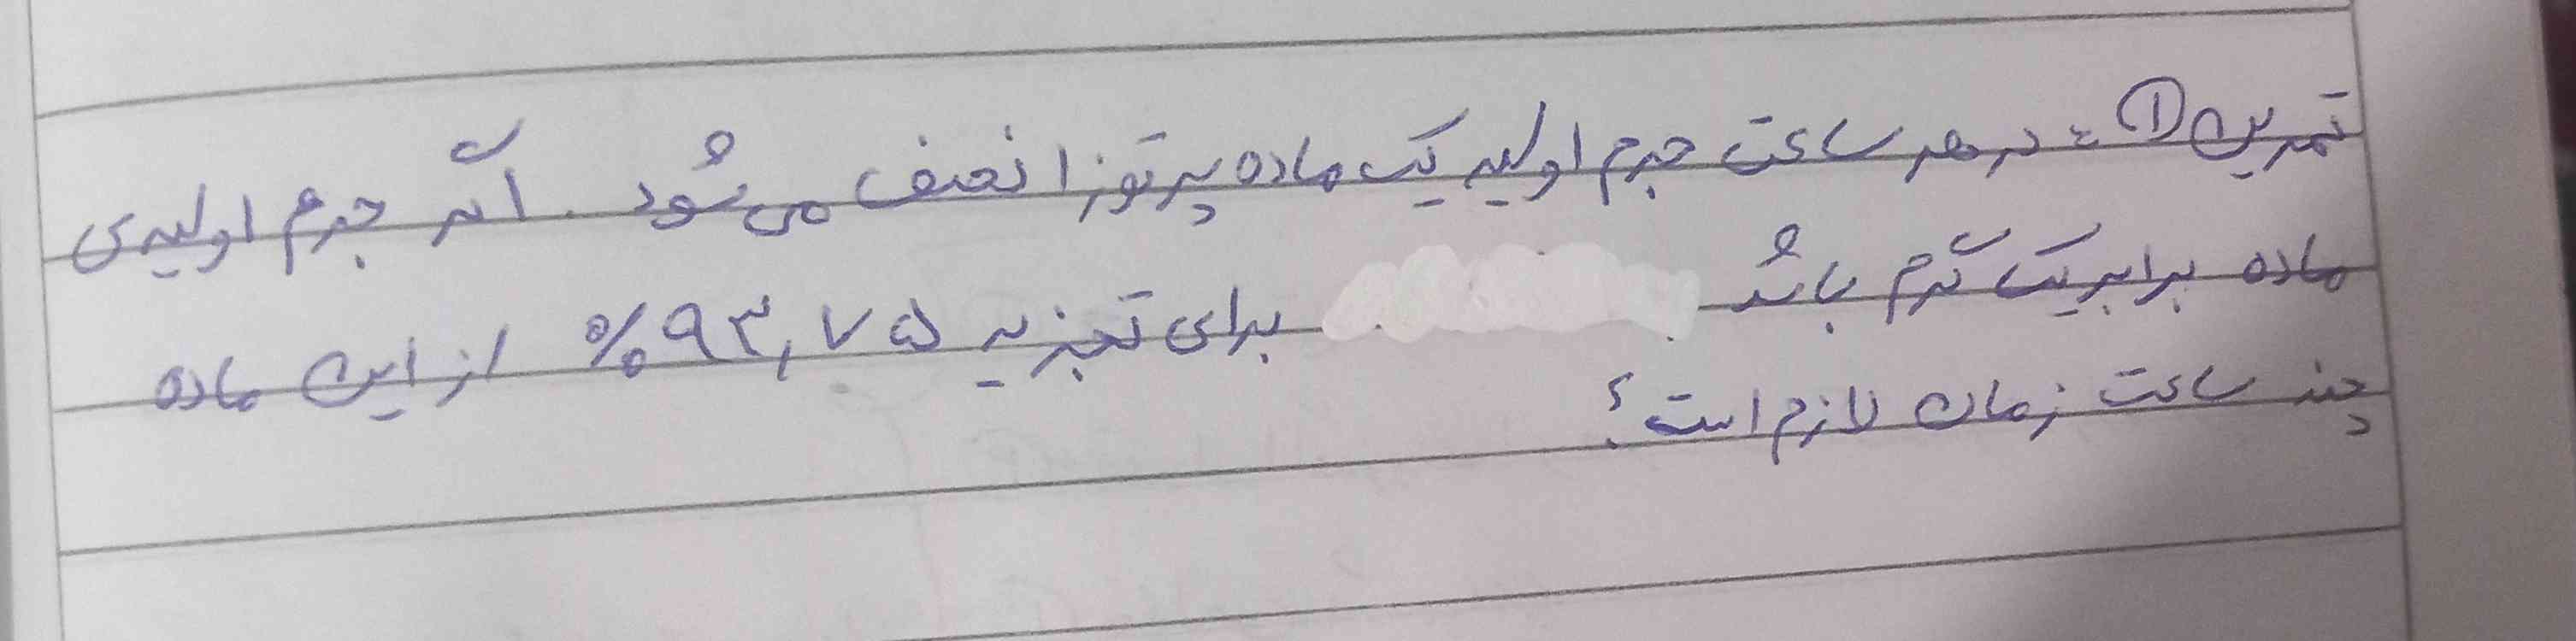 تمرین ①: در هر ساعت جرم اولیه یک ماده پرتوزا نصف می‌شود. اگر جرم اولیه‌ی
ماده برابر یک گرم باشد. برای تجزیه ۹۳,۷۵% از این ماده
چند ساعت زمان لازم است؟